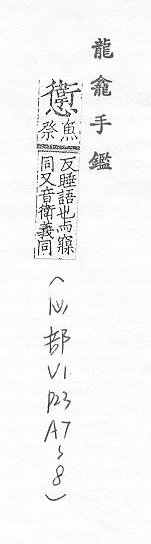 龍龕手鑑
㦣
魚
祭
反睡語也与寱
同又音衛義同
(心部V1P23A7、8)